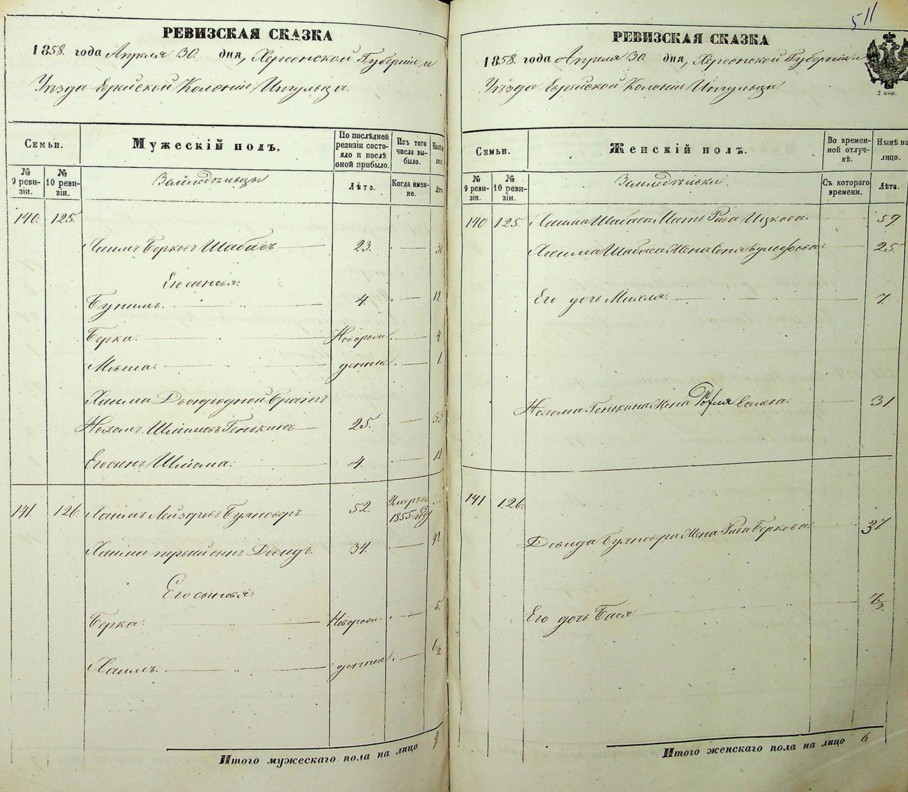 511
РЕВИЗСКАЯ СКАЗКА
1858. года Апреля 30. дня, Херсонской Губерніи и
Уѣзда Еврейской Колоніи Ингульца.
Семьи. Мужескій полъ. По послѣдней ревизіи состояло и послѣ оной прибыло. Изъ того числа выбыло.
№ 9 ревизіи. № 10 ревизіи. Земледѣльцы Лѣта. Когда именно.
140. 125.
Хаимъ Берковъ Шабасъ 23. 31
Его сыновья:
Бунимъ 4. 12
Берка. Новорож 4
Мовша. денные 1
Хаима Двоюродной братъ
25. 33
Его сынъ Шлiома: 4. 12
141. 126. Хаимъ Лейзеровъ 52. Умеръ въ 1855 году
Хаима первый сынъ Довидъ. 34. 42
Его сыновья:
Берка: Новорож 5.
Хаимъ. денные 1/2
Итого мужескаго пола на лицо 9
РЕВИЗСКАЯ СКАЗКА
1858. года Апреля 30 дня, Херсонской Губерніи и
Уѣзда Еврейской Колоніи Ингульца
2 коп.
Семьи. Женскій полъ. Во временной отлучкѣ. Нынѣ на лицо.
№ 9 ревизіи. № 10 ревизіи. Земледѣльцы. Съ котораго времени. Лѣта.
140 125. Хаима Шабаса Мать Рива Ицкова. 59.
Хаима Шабаса Жена Сеня Вульфова. 25.
Его дочь Михля. 7.
Жена Волкова. 31
141 126.
Довида Жена Рива Беркова. 37
Его дочь Бася
Итого женскаго пола на лицо 6.